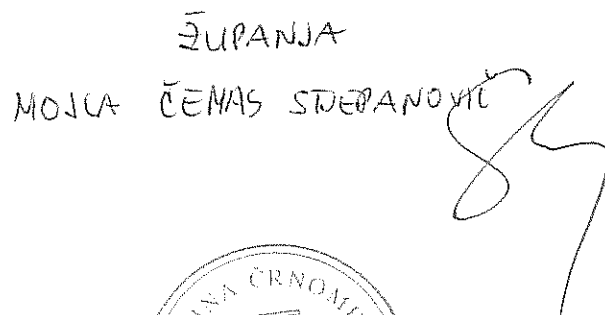 ŽUPANJA
MOJCA ČEMAS STJEPANOVIČ
ČRNOM